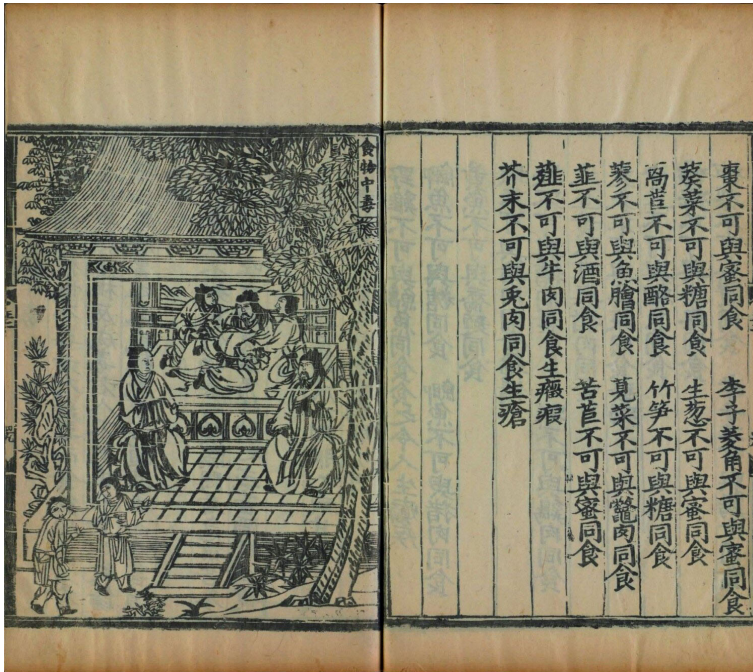 棗不可與蜜同食 李子菱角不可與蜜同食
葵菜不可與糖同食 生葱不可與蜜同食
萵苣不可與酪同食 竹笋不可與糖同食
蓼不可與魚膾同食 莧菜不可與鼈肉同食
韭不可與酒同食 苦苣不可與蜜同食
薤不可與牛肉同食生癥瘕
芥末不可與兔肉同食生瘡
食物中毒